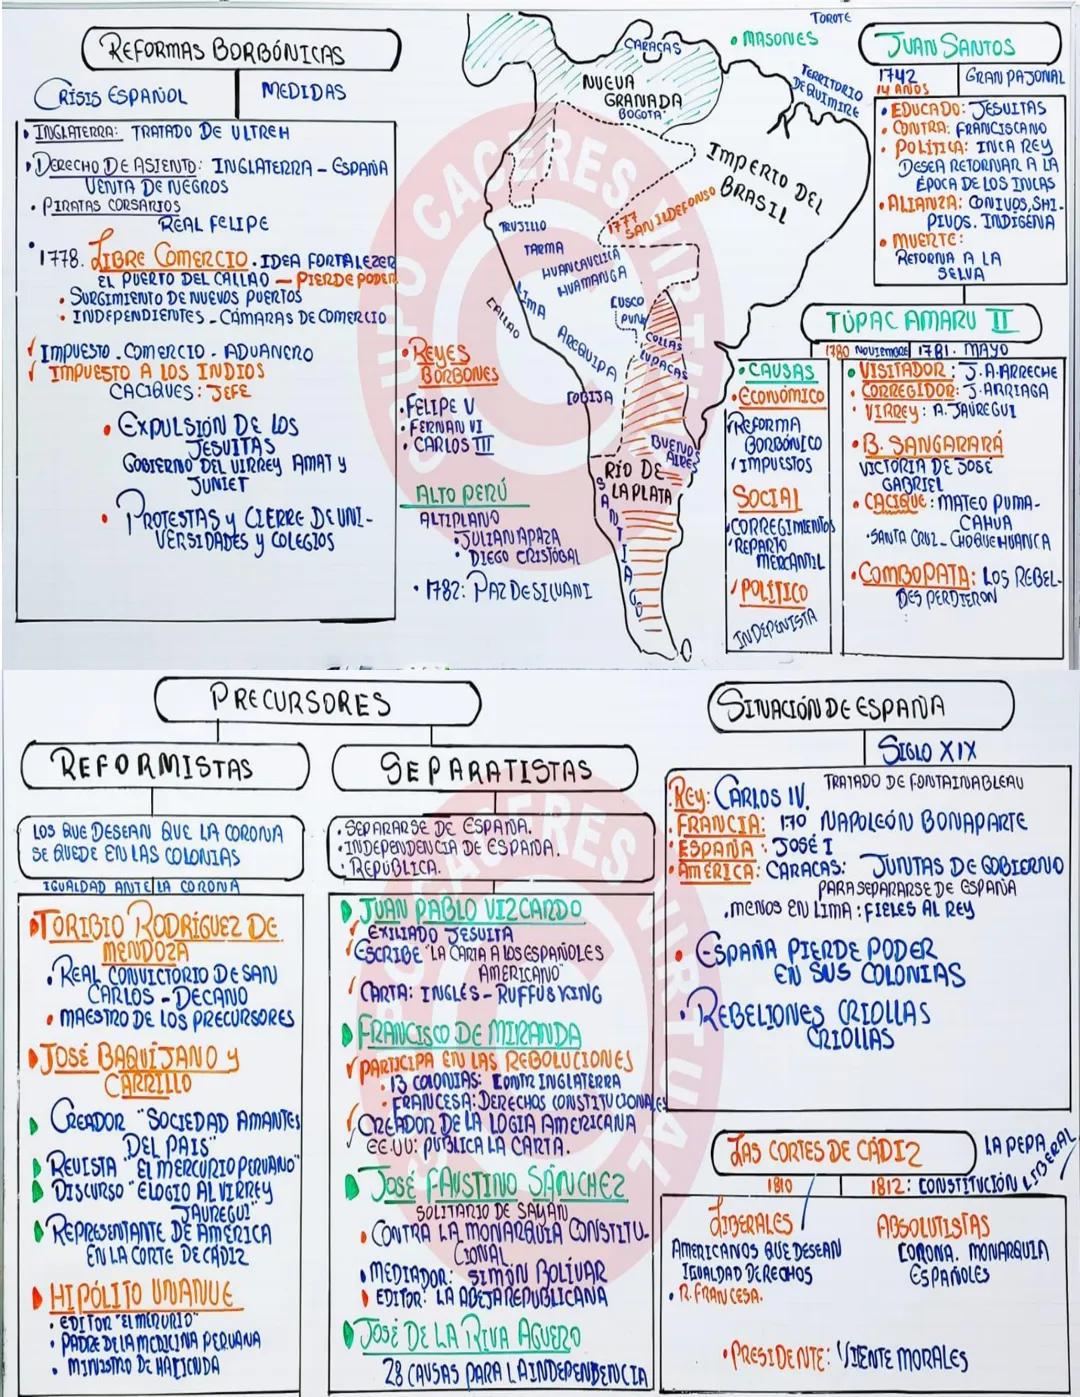 REFORMAS BORBÓNICAS
CRISIS ESPAÑOL
MEDIDAS
• INGLATERRA: TRATADO DE ULTREH
• DERECHO DE ASIENTO: INGLATERRA - ESPAÑA
VENTA DE NEGROS
• PIRATAS CORSARIOS
REAL FELIPE
• 1778. LIBRE COMERCIO. IDEA FORTALEZER
EL PUERTO DEL CALLAO - PIERDE PODER
• SURGIMIENTO DE NUEVOS PUERTOS
• INDEPENDIENTES - CÁMARAS DE COMERCIO
✓ IMPUESTO. COMERCIO. ADUANERO
✓ IMPUESTO A LOS INDIOS
CACIQUES: JEFE
• EXPULSIÓN DE LOS
JESUITAS
GOBIERNO DEL VIRREY AMAT Y
JUNIET
• PROTESTAS Y CIERRE DE UNI-
VERSIDADES Y COLEGIOS
• REYES
BORBONES
• FELIPE V
• FERNAN VI
• CARLOS III
ALTO PERÚ
ALTIPLANO
• JULIAN APAZA
• DIEGO CRISTÓBAL
• 1782: PAZ DE SICUANI
CARACAS
NUEVA
GRANADA
BOGOTA
IMPERIO DEL
BRASIL
1777
SAN ILDEFONSO
TRUJILLO
TARMA
HUANCAVELICA
HUAMANGA
LIMA
CALLAO
CUSCO
PUNO
AREQUIPA
COLLAS
LUPACAS
COBIJA
BUENOS
AIRES
RIO DE
LA PLATA
SANTIAGO
• MASONES
TOROTE
TERRITORIO
DE QUIMIRE
JUAN SANTOS
1742
14 AÑOS
GRAN PAJONAL
• EDUCADO: JESUITAS
• CONTRA: FRANCISCANO
• POLÍTICA: INCA REY
DESEA RETORNAR A LA
ÉPOCA DE LOS INCAS
• ALIANZA: CONIVOS, SHI-
PIVOS. INDIGENA
• MUERTE:
RETORNA A LA
SELVA
TÚPAC AMARU II
1780 NOVIEMBRE 1781. MAYO
• CAUSAS
• ECONÓMICO
✓ REFORMA
BORBÓNICO
✓ IMPUESTOS
SOCIAL
✓ CORREGIMIENTOS
✓ REPARTO
MERCANTIL
✓ POLÍTICO
INDEPENISTA
• VISITADOR: J.A. ARRECHE
• CORREGIDOR: J. ARRIAGA
• VIRREY: A. JAÚREGUI
• B. SANGARARÁ
VICTORIA DE JOSÉ
GABRIEL
• CACIQUE: MATEO PUMA-
CAHUA
• SANTA CRUZ - CHOQUEHUANCA
• COMBOPATA: LOS REBEL-
DES PERDIERON
PRECURSORES
REFORMISTAS
LOS QUE DESEAN QUE LA CORONA
SE QUEDE EN LAS COLONIAS
IGUALDAD ANTE LA CORONA
TORIBIO RODRÍGUEZ DE
MENDOZA
• REAL CONVICTORIO DE SAN
CARLOS - DECANO
• MAESTRO DE LOS PRECURSORES
JOSÉ BAQUÍJANO Y
CARRILLO
CREADOR "SOCIEDAD AMANTES
DEL PAIS"
REVISTA "EL MERCURIO PERUANO"
DISCURSO "ELOGIO AL VIRREY
JAUREGUI"
REPRESENTANTE DE AMÉRICA
EN LA CORTE DE CÁDIZ
HIPÓLITO UNANUE
• EDITOR "EL MERURIO"
• PADRE DE LA MEDICINA PERUANA
• MINISTRO DE HACIENDA
SEPARATISTAS
• SEPARARSE DE ESPAÑA.
• INDEPENDENCIA DE ESPAÑA.
• REPÚBLICA.
JUAN PABLO VIZCARDO
✓ EXILIADO JESUITA
✓ ESCRIBE "LA CARTA A LOS ESPAÑOLES
AMERICANO"
✓ CARTA: INGLÉS - RUFFUS KING
FRANCISCO DE MIRANDA
✓ PARTICIPA EN LAS REBOLUCIONES
• 13 COLONIAS: CONTR INGLATERRA
• FRANCESA: DERECHOS CONSTITUCIONALES
✓ CREADOR DE LA LOGIA AMERICANA
✓ EE.UU: PUBLICA LA CARTA.
JOSÉ FAUSTINO SÁNCHEZ
SOLITARIO DE SAYAN
• CONTRA LA MONARQUÍA CONSTITU-
CIONAL
• MEDIADOR: SIMÓN BOLÍVAR
EDITOR: LA ABEJA REPUBLICANA
JOSÉ DE LA RIVA AGUERO
28 CAUSAS PARA LA INDEPENDENCIA
SITUACIÓN DE ESPAÑA
SIGLO XIX
• REY: CARLOS IV.
TRATADO DE FONTAINABLEAU
• FRANCIA: NAPOLEÓN BONAPARTE
• ESPAÑA: JOSÉ I
• AMÉRICA: CARACAS: JUNTAS DE GOBIERNO
PARA SEPARARSE DE ESPAÑA
. MENOS EN LIMA: FIELES AL REY
• ESPAÑA PIERDE PODER
EN SUS COLONIAS
• REBELIONES CRIOLLAS
CRIOLLAS
LAS CORTES DE CÁDIZ
LA PEPA
1810
1812: CONSTITUCIÓN LIBERAL
LIBERALES
AMERICANOS QUE DESEAN
IGUALDAD DERECHOS
• R. FRANCESA.
ABSOLUTISTAS
CORONA. MONARQUIA
ESPAÑOLES
• PRESIDENTE: VIENTE MORALES
GRUPO CACERES VIRTUAL
CACERES VIRTUAL